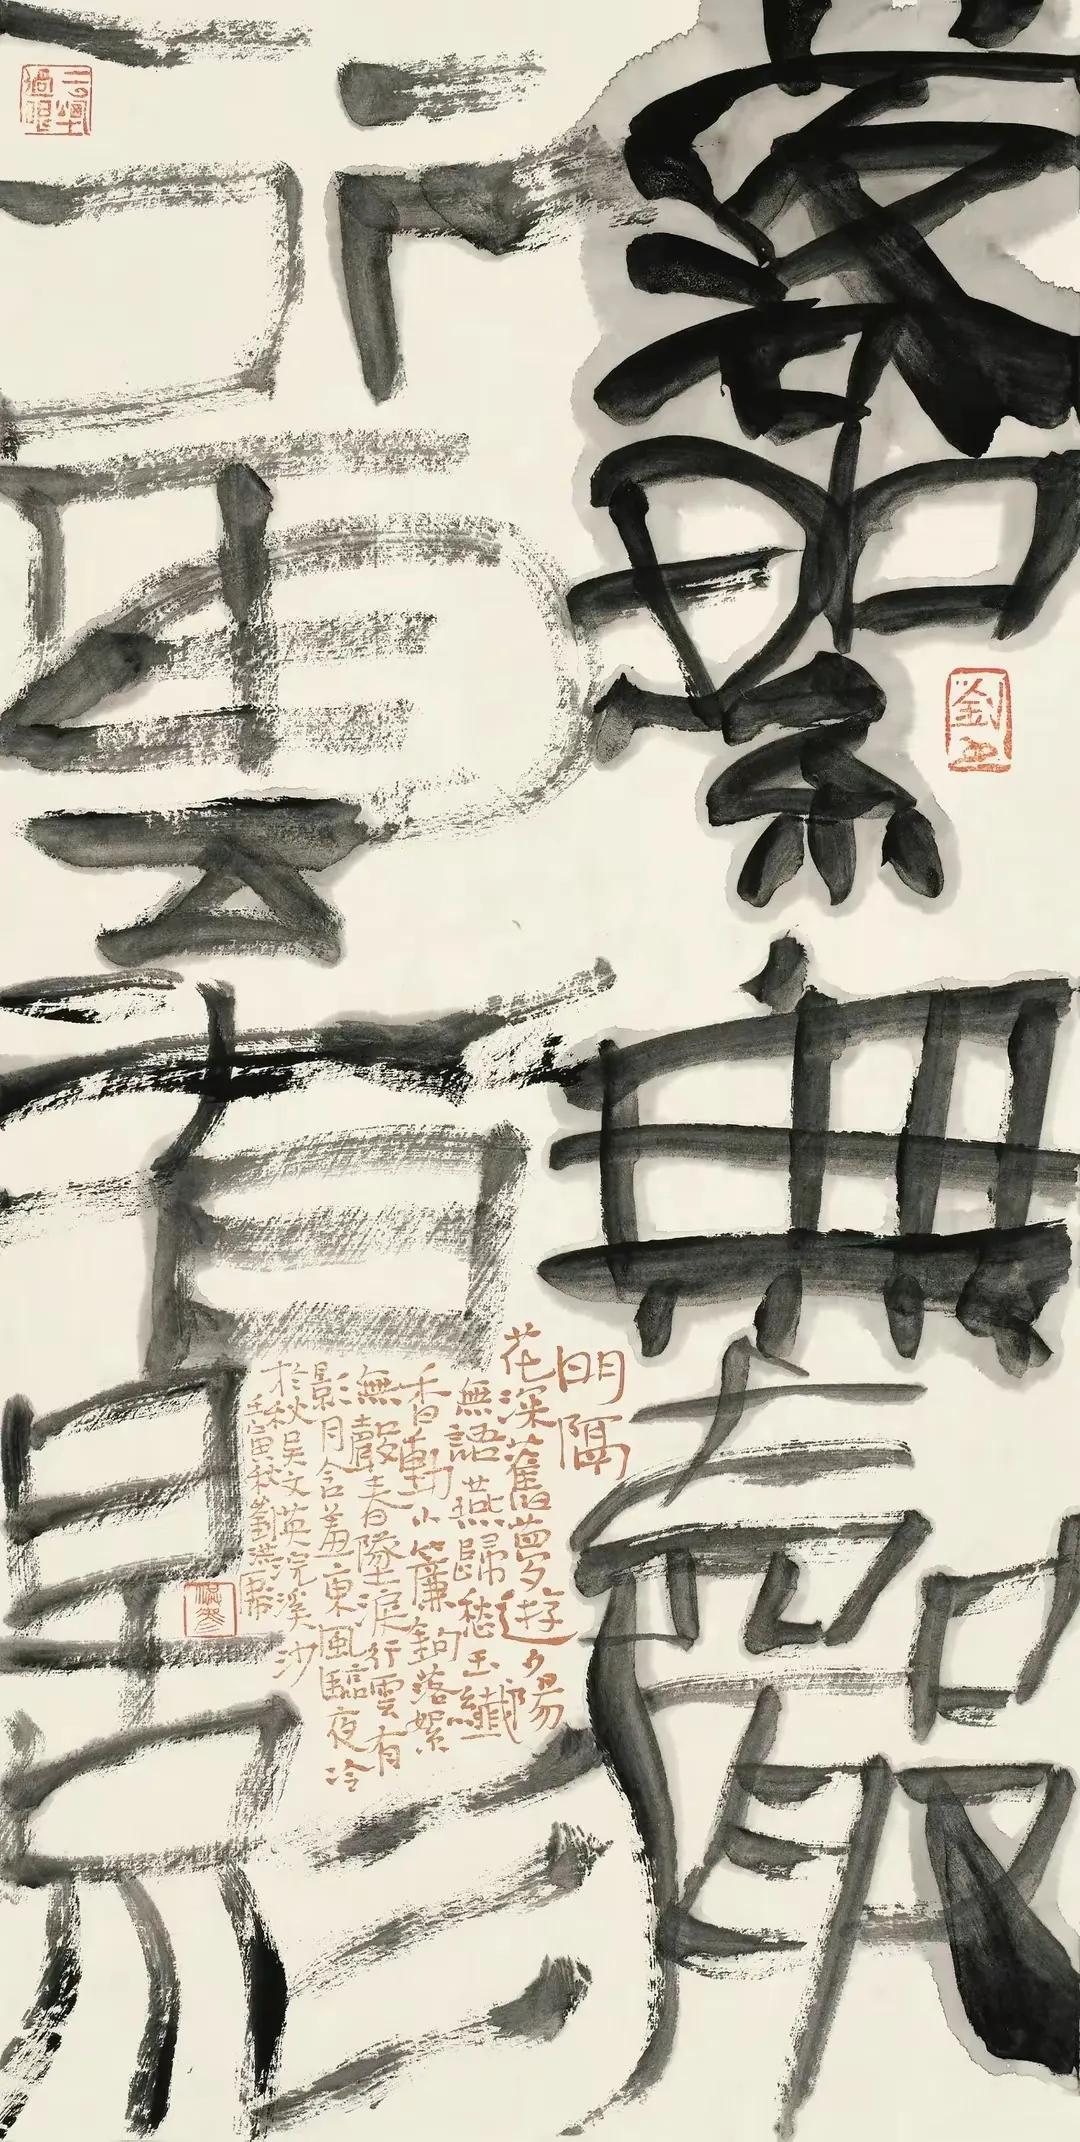 落絮無聲
行雲有影
門隔
花深舊夢遊夕陽
無語燕歸愁玉纖
香動小簾鉤落絮
無聲春墜淚行雲有
影月含羞東風臨夜冷
於秋吳文英浣溪沙
壬寅秋劉洪彪
洪彪